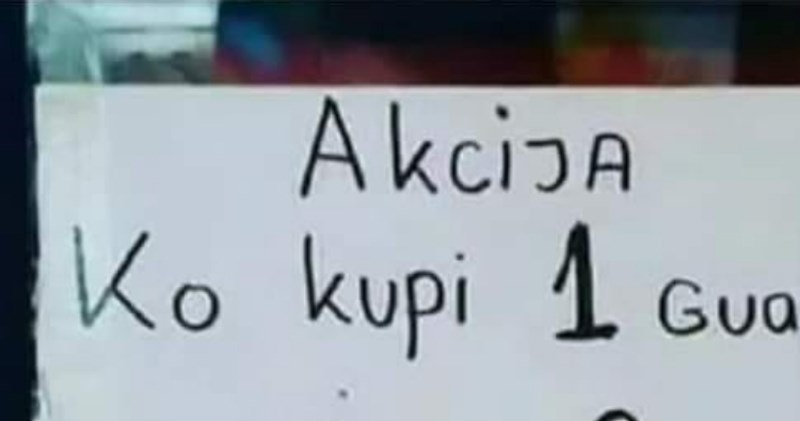 AkcijA
Ko kupi 1 Gua